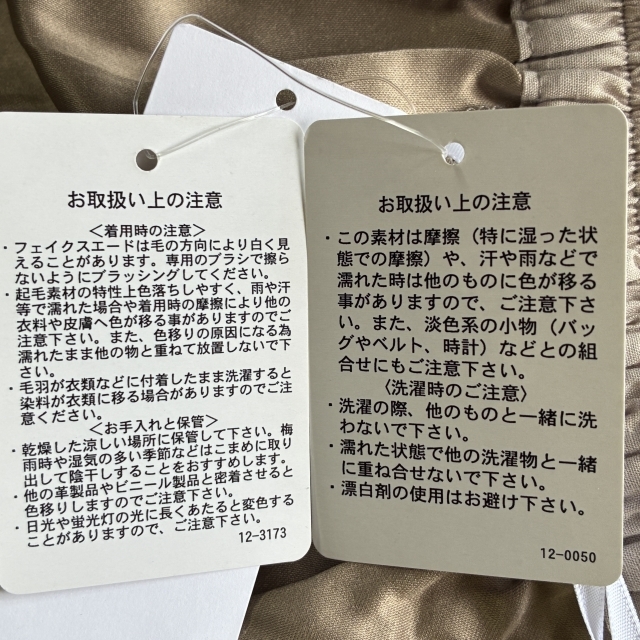 お取扱い上の注意
＜着用時の注意＞
・フェイクスエードは毛の方向により白く見
えることがあります。専用のブラシで擦ら
ないようにブラッシングしてください。
・起毛素材の特性上色落ちしやすく、雨や汗
等で濡れた場合や着用時の摩擦により他の
衣料や皮膚へ色が移る事がありますのでご
注意下さい。また、色移りの原因になる為
濡れたまま他の物と重ねて放置しないで下
さい。
・毛羽が衣類などに付着したまま洗濯すると
染料が衣類に移る場合がありますのでご注
意ください。
＜お手入れと保管＞
・乾燥した涼しい場所に保管して下さい。梅
雨時や湿気の多い季節などはこまめに取り
出して陰干しすることをおすすめします。
・他の革製品やビニール製品と密着させると
色移りしますのでご注意下さい。
・日光や蛍光灯の光に長くあたると変色する
ことがありますので、ご注意下さい。
12-3173
お取扱い上の注意
・この素材は摩擦（特に湿った状
態での摩擦）や、汗や雨などで
濡れた時は他のものに色が移る
事がありますので、ご注意下さ
い。また、淡色系の小物（バッ
グやベルト、時計）などとの組
合せにもご注意下さい。
〈洗濯時のご注意〉
・洗濯の際、他のものと一緒に洗
わないで下さい。
・濡れた状態で他の洗濯物と一緒
に重ね合せないで下さい。
・漂白剤の使用はお避け下さい。
12-0050